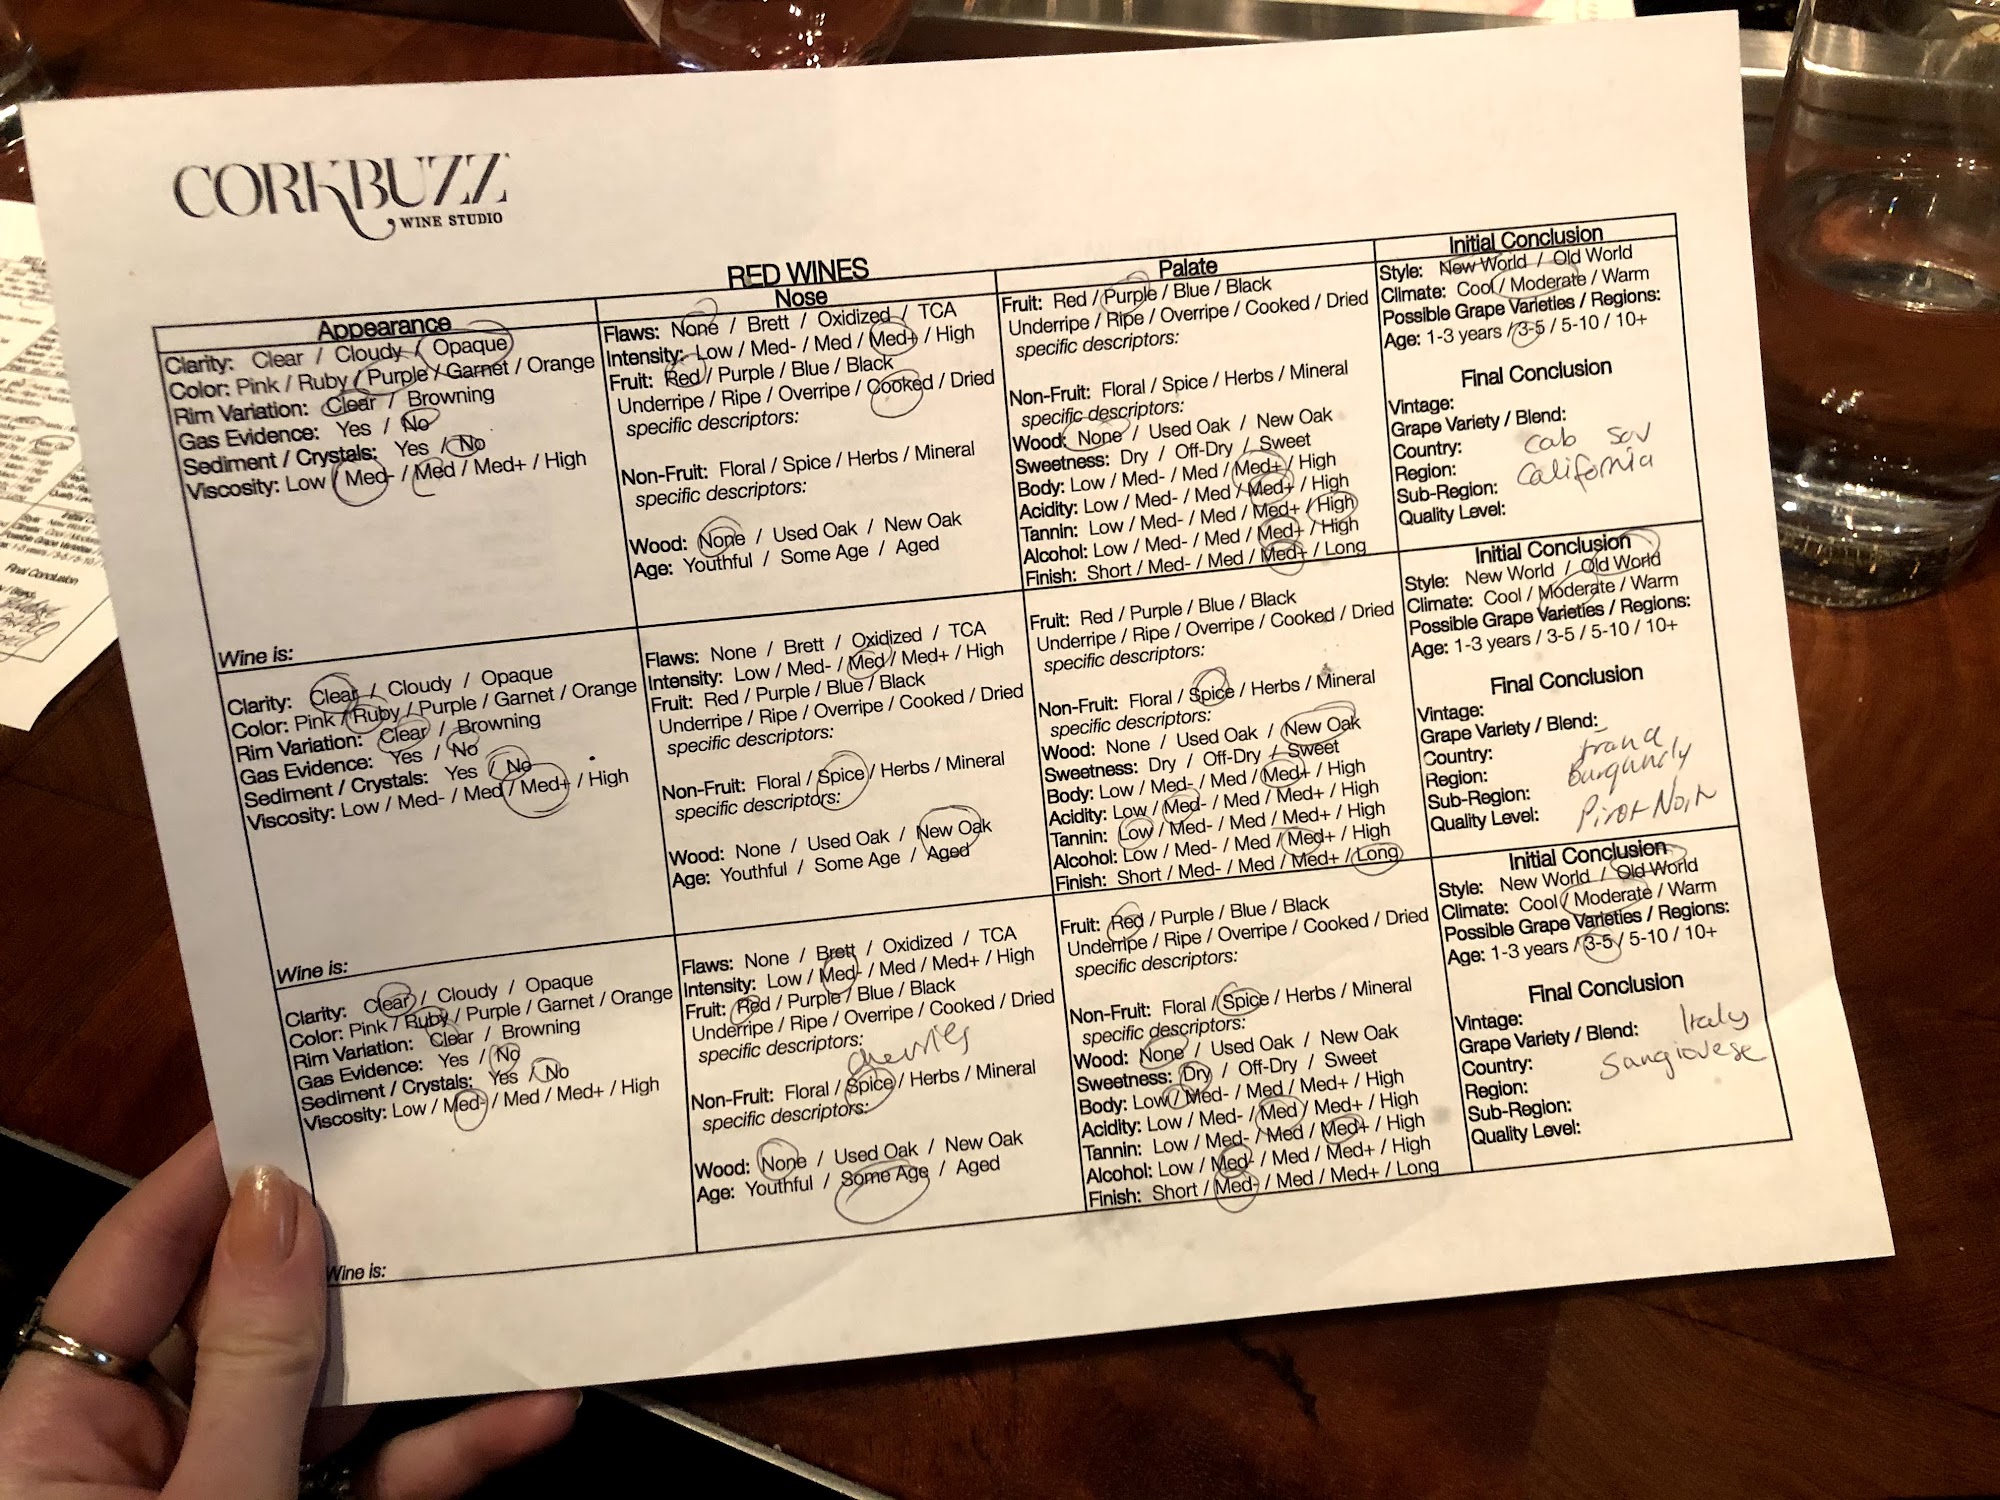 CORKBUZZ
WINE STUDIO
RED WINES
Appearance
Clarity: Clear / Cloudy / Opaque
Color: Pink / Ruby / Purple / Garnet / Orange
Rim Variation: Clear / Browning
Gas Evidence: Yes / No
Sediment / Crystals: Yes / No
Viscosity: Low / Med- / Med / Med+ / High
Wine is:
Nose
Flaws: None / Brett / Oxidized / TCA
Intensity: Low / Med- / Med / Med+ / High
Fruit: Red / Purple / Blue / Black
Underripe / Ripe / Overripe / Cooked / Dried
specific descriptors:
Non-Fruit: Floral / Spice / Herbs / Mineral
specific descriptors:
Wood: None / Used Oak / New Oak
Age: Youthful / Some Age / Aged
Palate
Fruit: Red / Purple / Blue / Black
Underripe / Ripe / Overripe / Cooked / Dried
specific descriptors:
Non-Fruit: Floral / Spice / Herbs / Mineral
specific descriptors:
Wood: None / Used Oak / New Oak
Sweetness: Dry / Off-Dry / Sweet
Body: Low / Med- / Med / Med+ / High
Acidity: Low / Med- / Med / Med+ / High
Tannin: Low / Med- / Med / Med+ / High
Alcohol: Low / Med- / Med / Med+ / High
Finish: Short / Med- / Med / Med+ / Long
Initial Conclusion
Style: New World / Old World
Climate: Cool / Moderate / Warm
Possible Grape Varieties / Regions:
Age: 1-3 years / 3-5 / 5-10 / 10+
Final Conclusion
Vintage:
Grape Variety / Blend:
Country: cab sav
Region: California
Sub-Region:
Quality Level:
Clarity: Clear / Cloudy / Opaque
Color: Pink / Ruby / Purple / Garnet / Orange
Rim Variation: Clear / Browning
Gas Evidence: Yes / No
Sediment / Crystals: Yes / No
Viscosity: Low / Med- / Med / Med+ / High
Wine is:
Flaws: None / Brett / Oxidized / TCA
Intensity: Low / Med- / Med / Med+ / High
Fruit: Red / Purple / Blue / Black
Underripe / Ripe / Overripe / Cooked / Dried
specific descriptors:
Non-Fruit: Floral / Spice / Herbs / Mineral
specific descriptors:
Wood: None / Used Oak / New Oak
Age: Youthful / Some Age / Aged
Fruit: Red / Purple / Blue / Black
Underripe / Ripe / Overripe / Cooked / Dried
specific descriptors:
Non-Fruit: Floral / Spice / Herbs / Mineral
specific descriptors:
Wood: None / Used Oak / New Oak
Sweetness: Dry / Off-Dry / Sweet
Body: Low / Med- / Med / Med+ / High
Acidity: Low / Med- / Med / Med+ / High
Tannin: Low / Med- / Med / Med+ / High
Alcohol: Low / Med- / Med / Med+ / High
Finish: Short / Med- / Med / Med+ / Long
Initial Conclusion
Style: New World / Old World
Climate: Cool / Moderate / Warm
Possible Grape Varieties / Regions:
Age: 1-3 years / 3-5 / 5-10 / 10+
Final Conclusion
Vintage:
Grape Variety / Blend:
Country:
Region: Burgundy
Sub-Region:
Quality Level: Pinot Noir
Clarity: Clear / Cloudy / Opaque
Color: Pink / Ruby / Purple / Garnet / Orange
Rim Variation: Clear / Browning
Gas Evidence: Yes / No
Sediment / Crystals: Yes / No
Viscosity: Low / Med- / Med / Med+ / High
Wine is:
Flaws: None / Brett / Oxidized / TCA
Intensity: Low / Med- / Med / Med+ / High
Fruit: Red / Purple / Blue / Black
Underripe / Ripe / Overripe / Cooked / Dried
specific descriptors:
cherries
Non-Fruit: Floral / Spice / Herbs / Mineral
specific descriptors:
Wood: None / Used Oak / New Oak
Age: Youthful / Some Age / Aged
Fruit: Red / Purple / Blue / Black
Underripe / Ripe / Overripe / Cooked / Dried
specific descriptors:
Non-Fruit: Floral / Spice / Herbs / Mineral
specific descriptors:
Wood: None / Used Oak / New Oak
Sweetness: Dry / Off-Dry / Sweet
Body: Low / Med- / Med / Med+ / High
Acidity: Low / Med- / Med / Med+ / High
Tannin: Low / Med- / Med / Med+ / High
Alcohol: Low / Med- / Med / Med+ / High
Finish: Short / Med- / Med / Med+ / Long
Initial Conclusion
Style: New World / Old World
Climate: Cool / Moderate / Warm
Possible Grape Varieties / Regions:
Age: 1-3 years / 3-5 / 5-10 / 10+
Final Conclusion
Vintage:
Grape Variety / Blend: Italy
Country: Sangiovese
Region:
Sub-Region:
Quality Level:
Final Conclusion